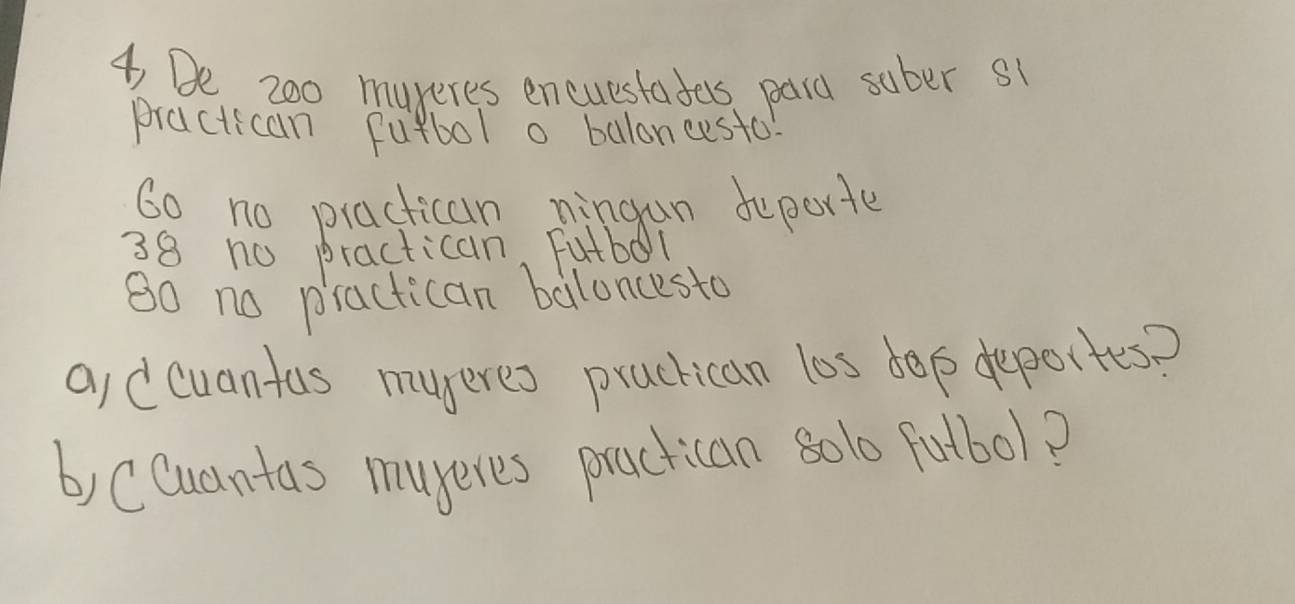 4, De 200 mujeres encuestadas para saber si
practican futbol o baloncesto:
60 no practican ningun deporte
38 no practican futbol
80 no practican baloncesto
a) ¿Cuantas mujeres practican los dos deportes?
b) ¿Cuantas mujeres practican solo futbol?